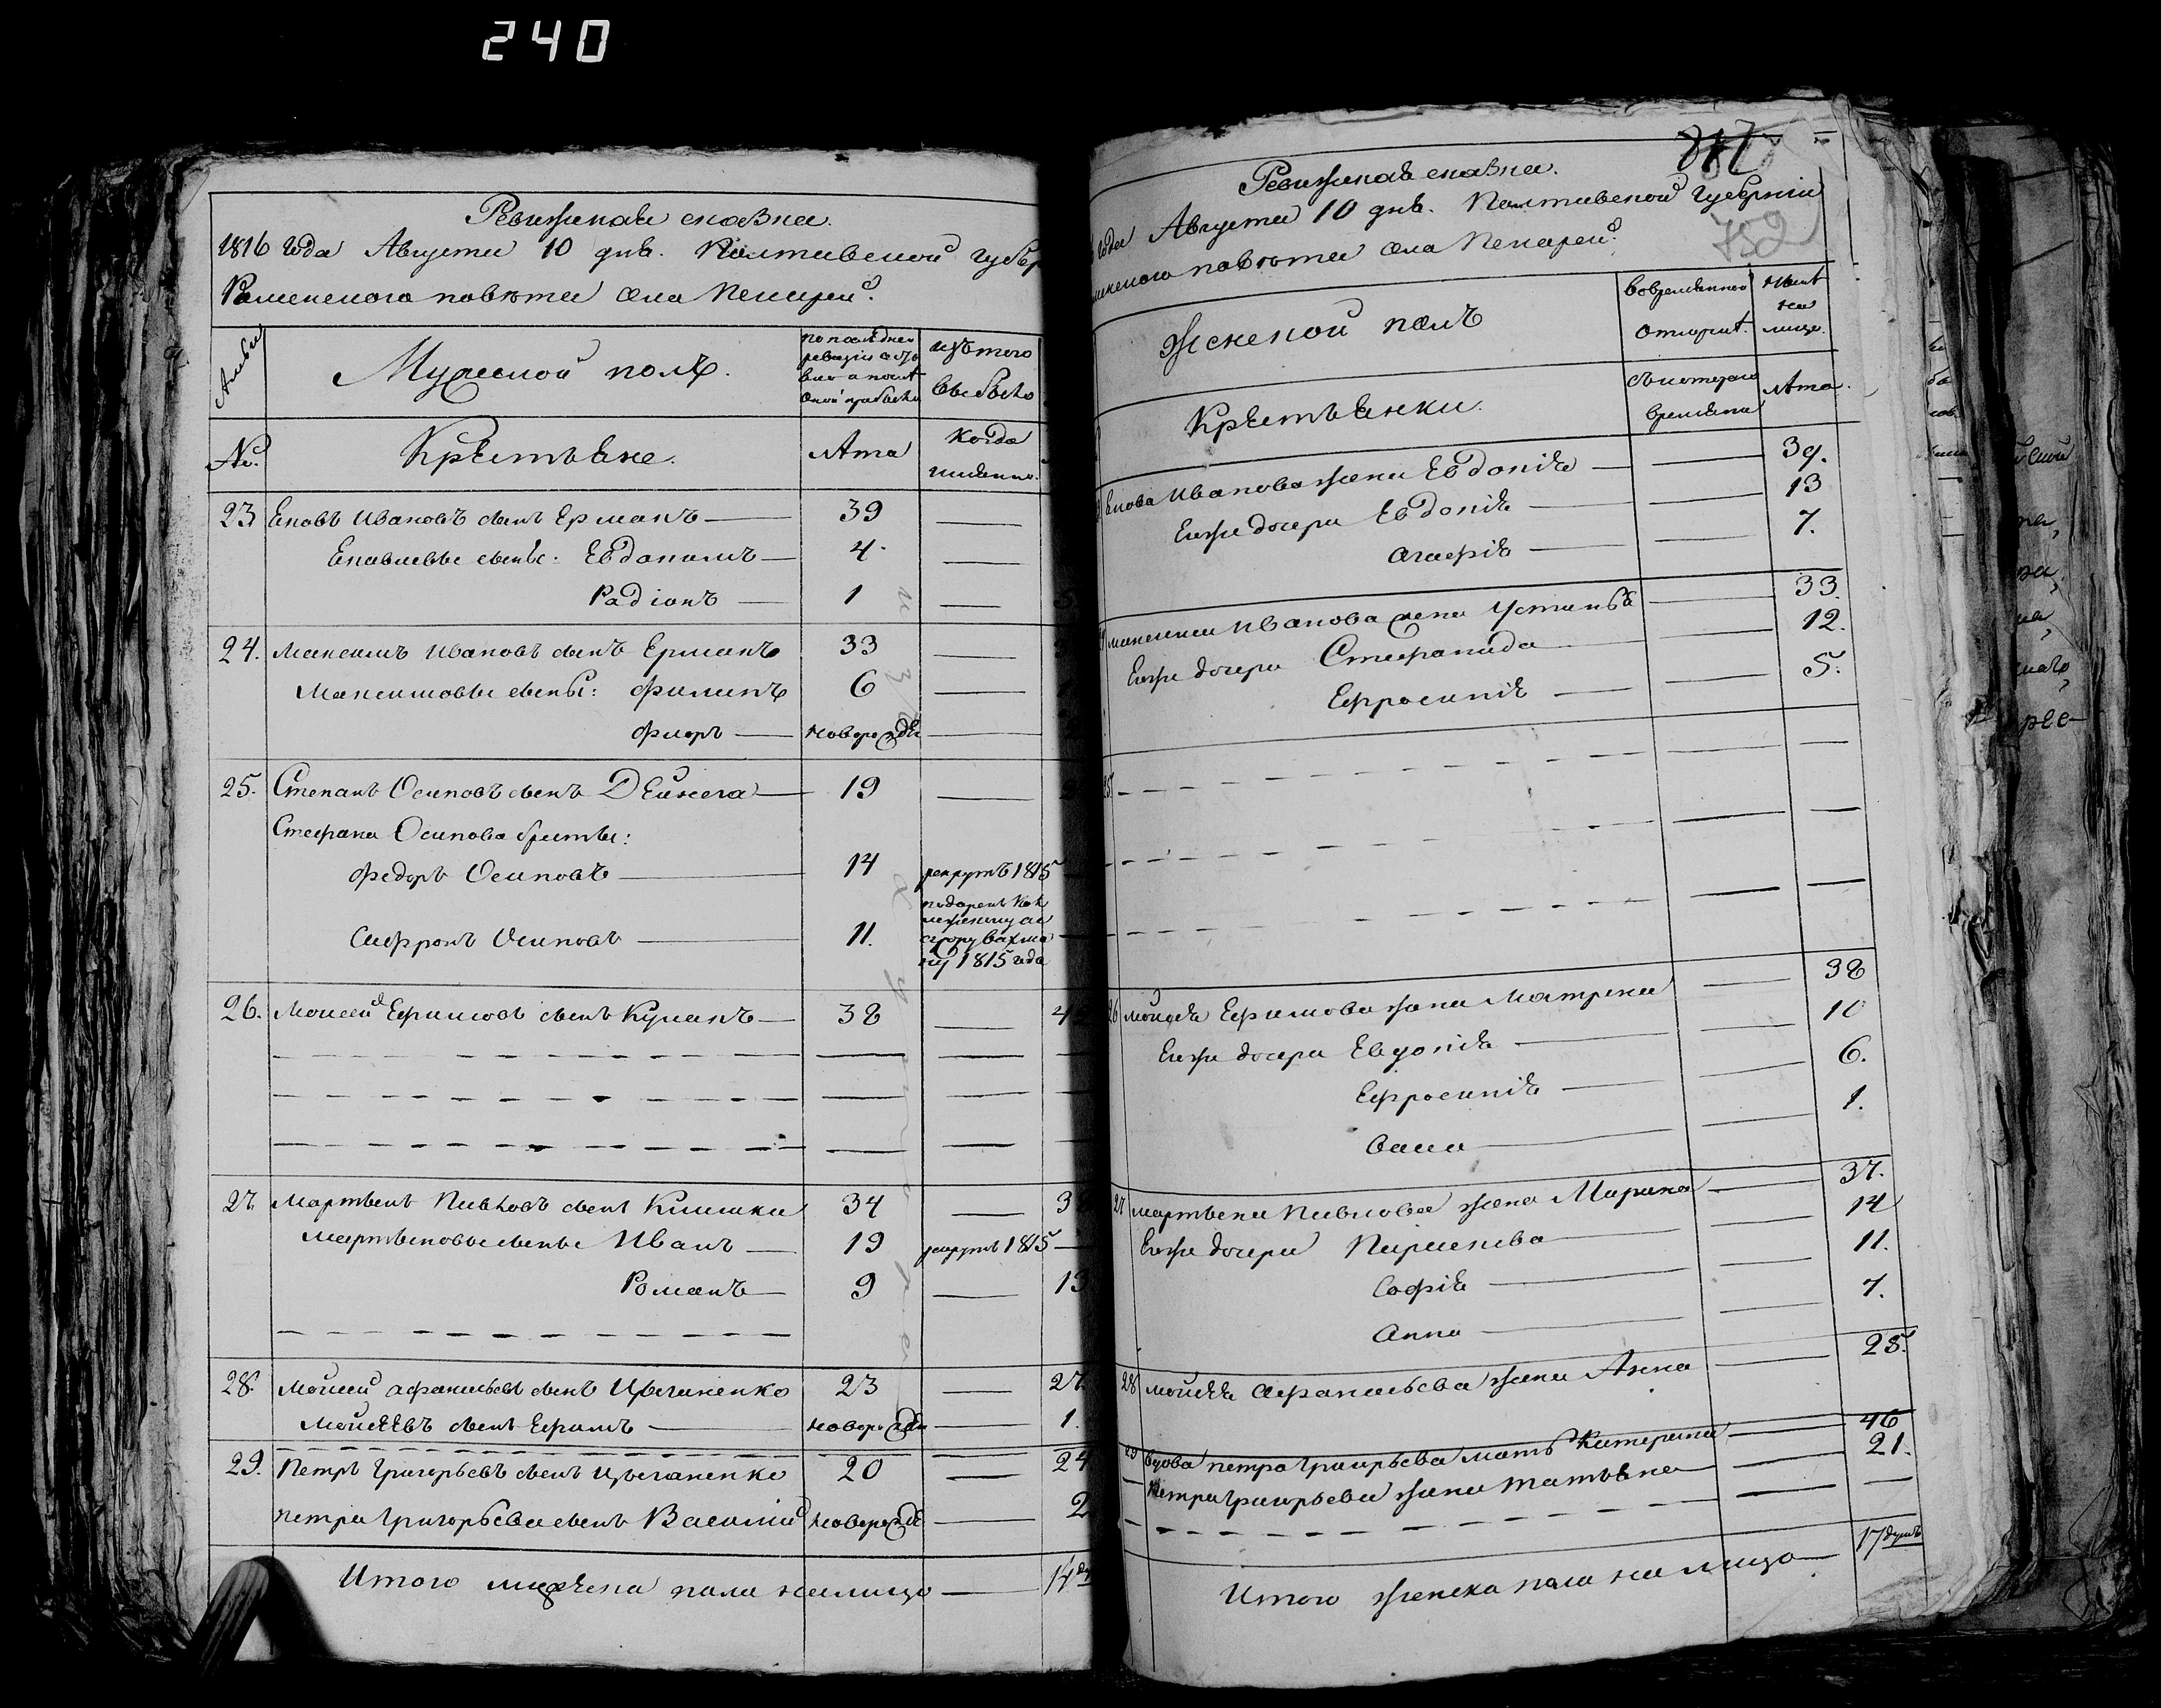 240
Ревижская сказка.
1816 года Августа 10 дня. Полтавской Губер
Роменского повета села Пекарей.
Мужеской полъ.
по последней ревизіи состояло и после оной прибыло
изъ того выбыло
№.
Крестьяне.
Лета
когда именно.
23 Ековъ Ивановъ сынъ Ерманъ 39
Ековлевы сыны: Евдокимъ 4.
Радіонъ 1
24. Максимъ Ивановъ сынъ Ерманъ 33
Максимовы сыны: Филипъ 6
Флоръ новорожде
25. Степанъ Осиповъ сынъ Дейнега 19
Стефана Осипова братьи:
Федоръ Осиповъ 14 рекрутъ 1815
Сафронъ Осиповъ 11.
1815 года
26. Моисей Ефимовъ сынъ Куланъ 38 4
27. Мартынъ Павловъ сынъ Кишка 34 3
Мартыновы сыны Иванъ 19 рекрутъ 1815
Романъ 9 13
28. Мойсей Афанасьевъ сынъ Цыганенко 23 27
Мойсеевъ сынъ Ефимъ новорожде 1.
29. Петръ Григорьевъ сынъ Цыганенко 20 24
Петра Григорьева сынъ Василий новорожде 2
Итого мужеска пола налицо 14
817
752
Ревижская сказка.
года Августа 10 дня. Полтавской Губерніи
менского повета села Пекарей.
Женской полъ
во временной отлучке.
ныне на лице.
Крестьянки.
съ котораго времени
Лета.
Екова Иванова жена Евдокія 39.
Ихже дочери Евдокія 13
Агафія 7.
Максима Иванова жена Устинья 33.
Ихже дочери Стефанида 12.
Ефросинія 5.
25
26 Мойсея Ефимова жена Матрена 38
Ихже дочери Евдокія 10
Ефросинія 6.
1.
27 Мартына Павлова жена Марина 37.
Ихже дочери Парасковья 14
Софія 11.
Анна 7.
28 Мойсея Афанасьева жена Анна 25.
29 вдова Петра Григорьева мать Катерина 46
Петра Григорьева жена Татьяна 21.
Итого женска пола на лицо 17 душъ